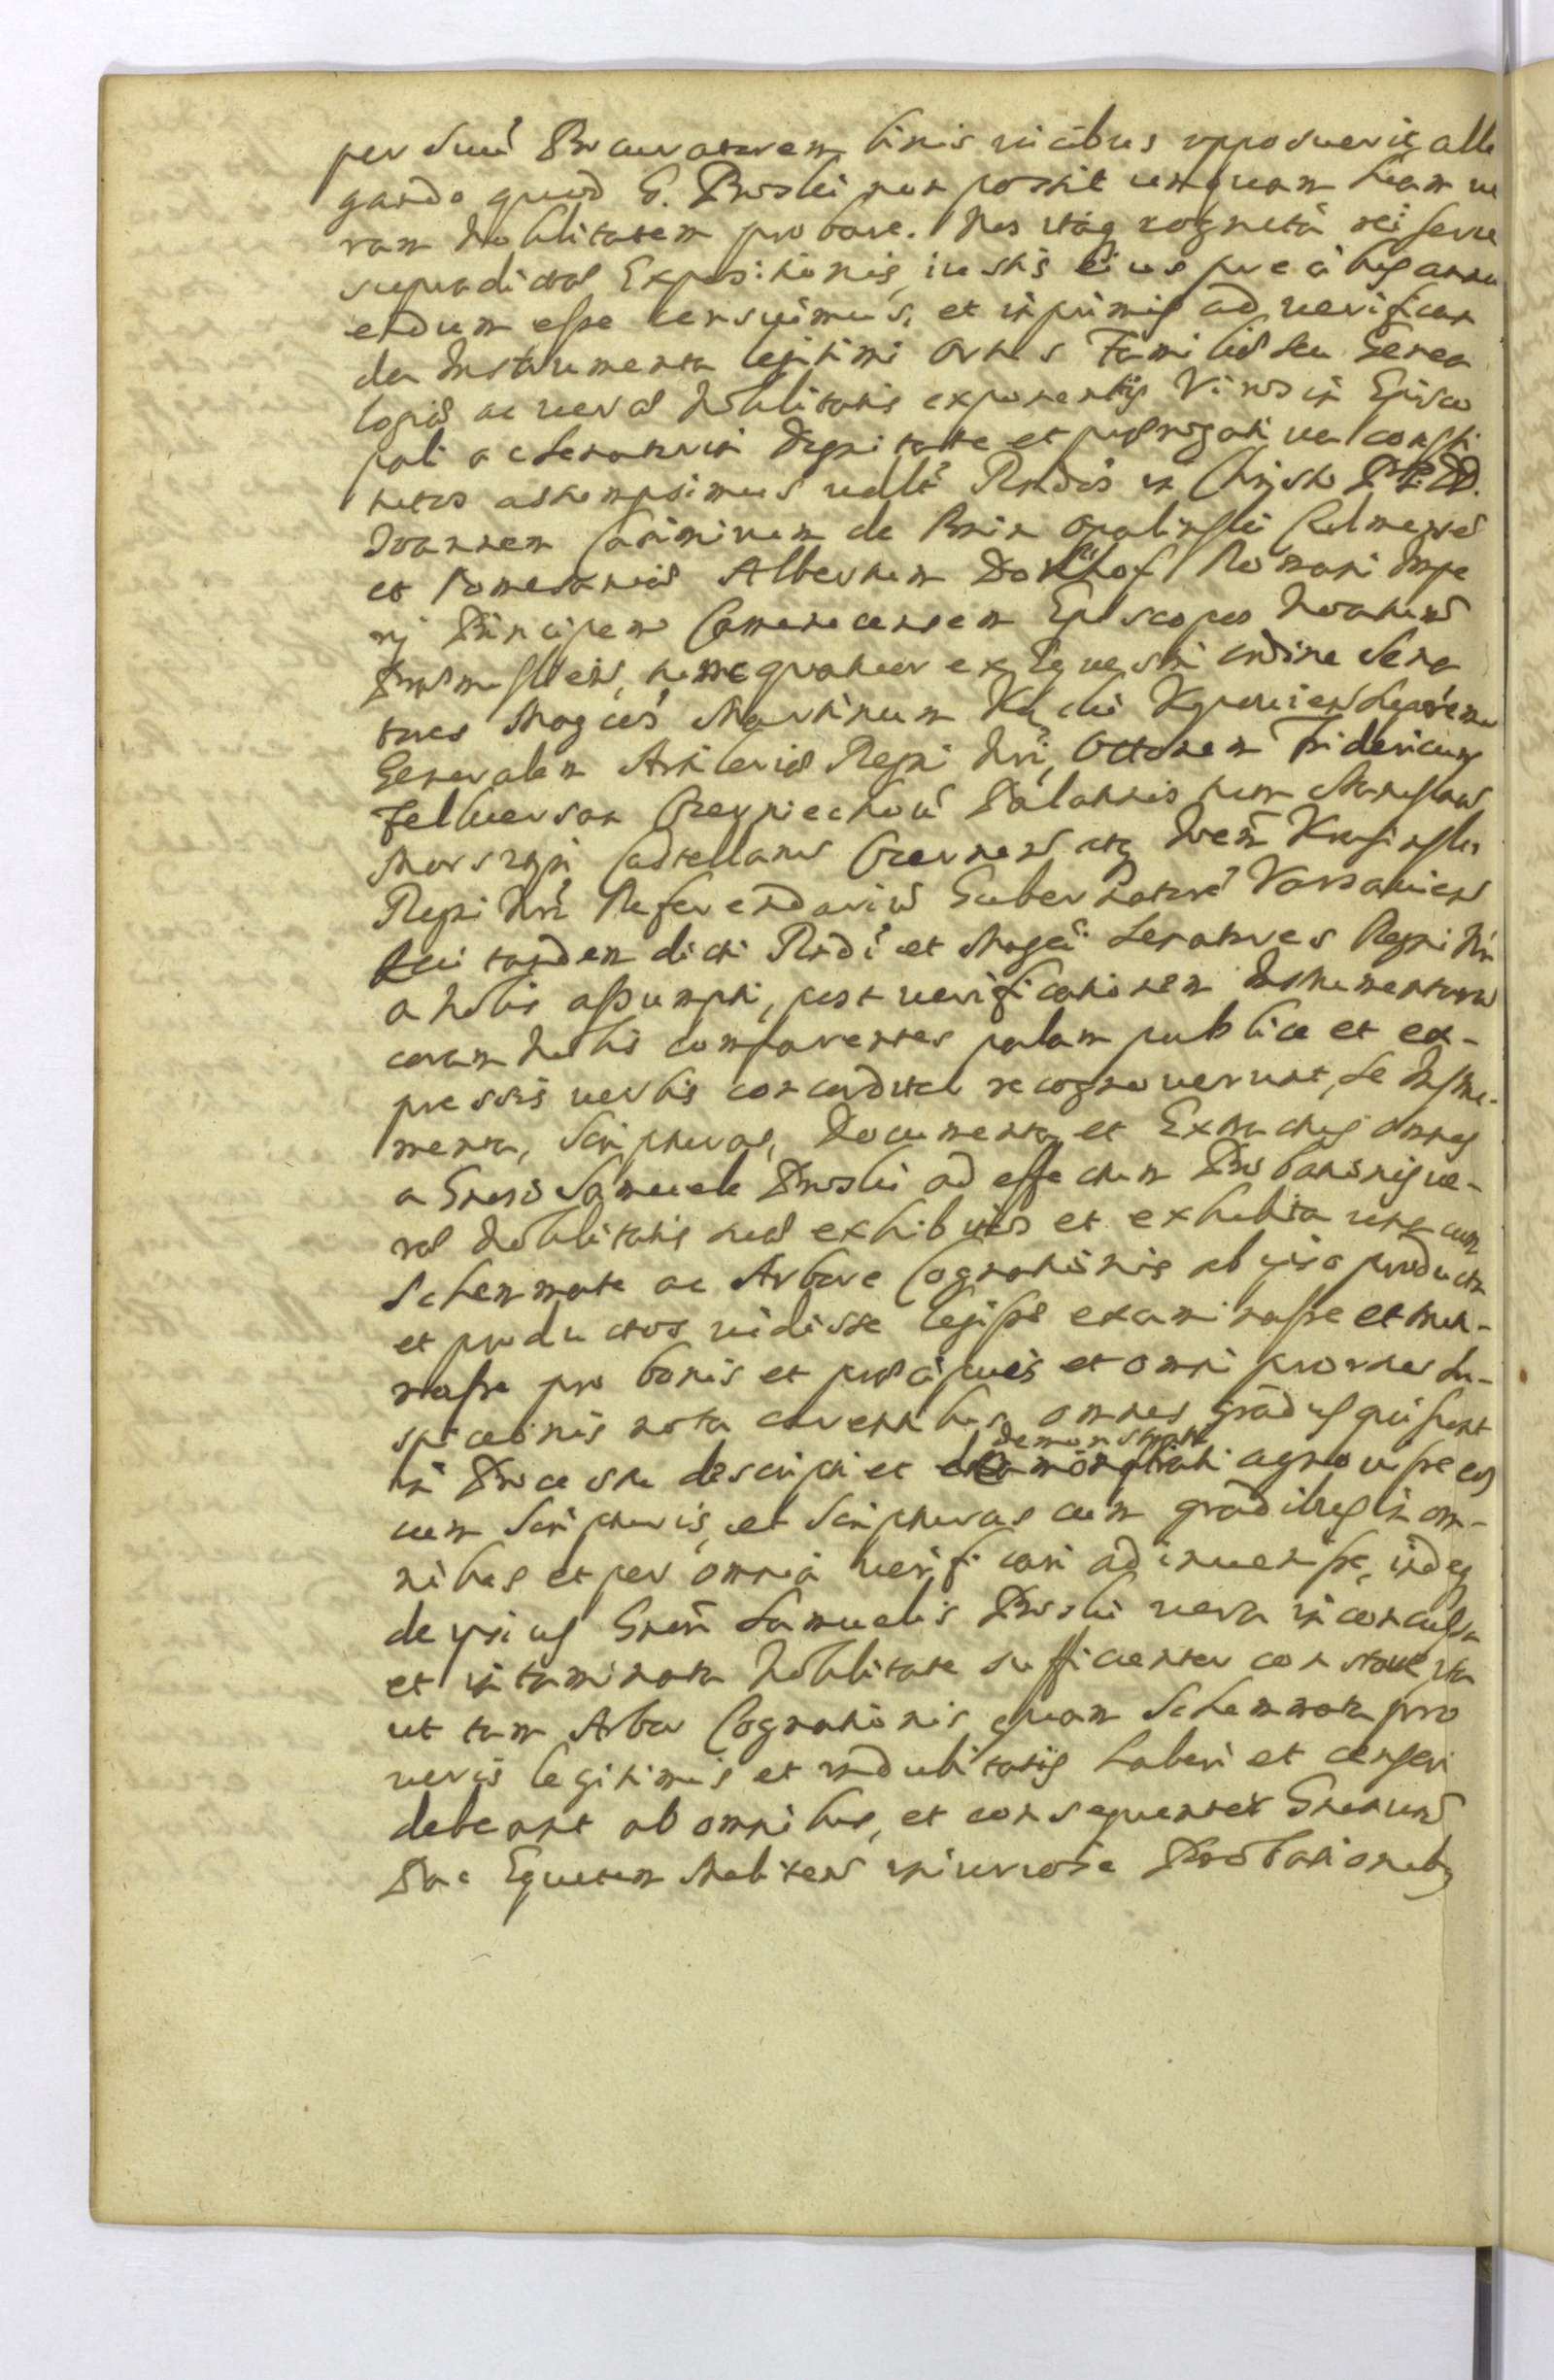 per suũ Procuratorem binis vicibus opposuerit alle
gando quod G. Proski non possit unquam suam ve
ram Nobilitatem probare. Nos itaq cognita rei serie
supradictae Expositionis, iustis eius precibus annu
endum esse censuimus, et inprimis ad verifican
da Instrumenta legitimi Ortus Familiae seu Genea
logiae ac verae Nobilitatis exponentis Viros in Episco
pali ac Senatoria Dignitate et praerogativa consti
tutos assumpsimus Rndos in Christo
Ioannem Casimirum de Bnin Opalinski Culmensẽ
et Pomesaniae Albertum Donhof Romani Impe
rij Principem Camenecensem Episcopos
nec quatuor ex Equestri ordine Sena
tores Magcos Martinum Kącki Kyoviens
Generalem Artileriae Regni Nri, Ottonem Fridericum
Felkerson Palatinos tum Stanislaũ
Morsztyn Castellanũ Czernens atq Krasinski
Regni Nri Referendariũ Gubernatorẽ Varsaviens
Qui tandem dicti Rndi et Magci Senatores Regni Nri
a Nobis assumpti, post verificationem Instrumentorũ
coram Nobis comparentes palam publice et ex-
pressis verbis concorditer recognoverunt, se Instru-
menta, Scripturas, Documenta et Extractus omnes
a Gnoso Samuele Proski ad effectum Probationis ve-
rae Nobilitatis suae exhibitas et exhibita una cum
Schemmate ac Arbore Cognationis ab ipso producta
et productos vidisse legisse examinasse et
nasse pro bonis et praecipuis et omni prorsus su-
spicionis nota carentibus, omnes gradus qui sunt
in Processu descripti et demonstrati agnovisse eos
cum Scripturis, et Scripturas cum gradibus in om-
nibus et per omnia verificari adinvenisse, indeq
de ipsius Gnosi Samuelis Proski vera inconcussa
et intaminata Nobilitate sufficienter constare, ita
ut tam Arbor Cognationis quam Schemmata pro
veris legitimis et indubitatis haberi et censeri
debeant ab omnibus, et consequenter Gnosum
Equitem Melitens iniuriose Probationibq